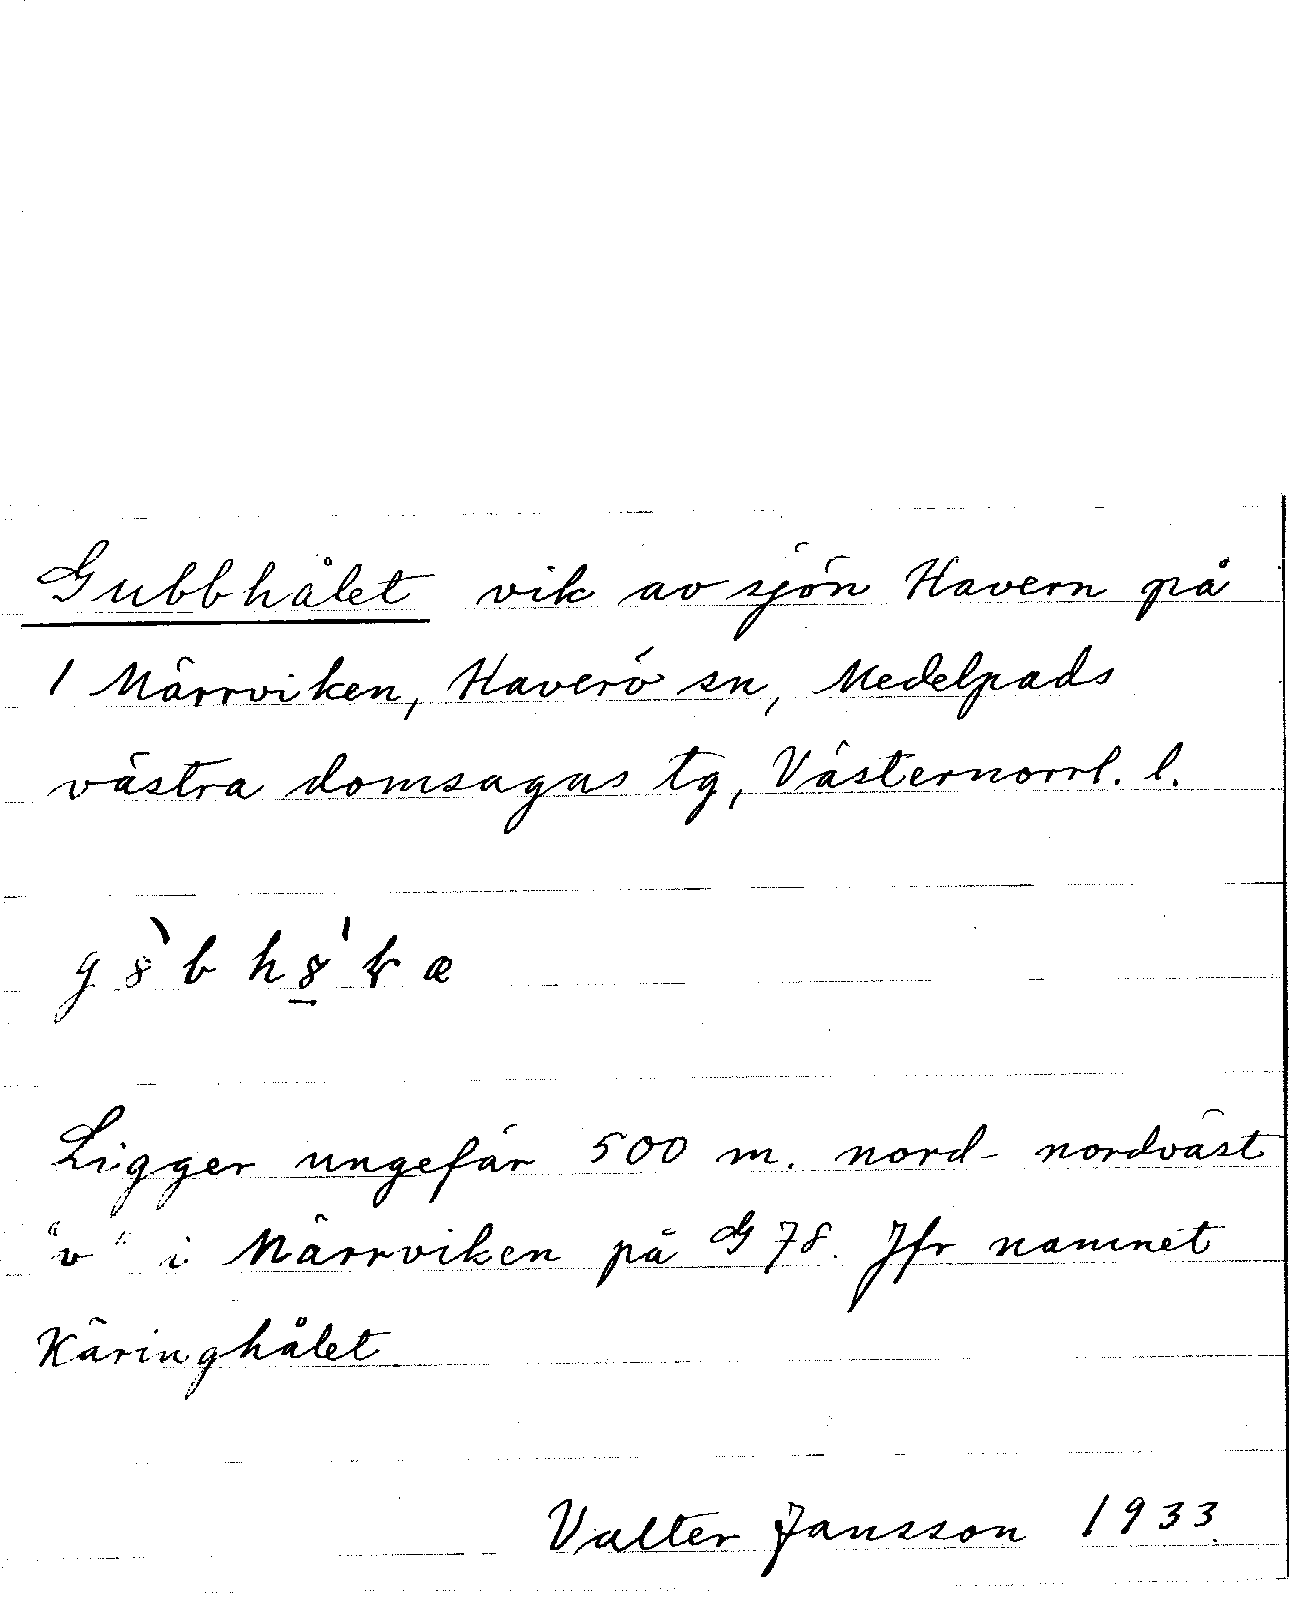 Gubbhålet vik av sjön Havern på
1 Märrviken, Haverö sn, Medelpads
västra domsagas tg, Västernorrl. l.
Ligger ungefär 500 m. nord- nordväst
"v" i Märrviken på G 78. Jfr namnet
Käringhålet
Valter Jansson 1933.